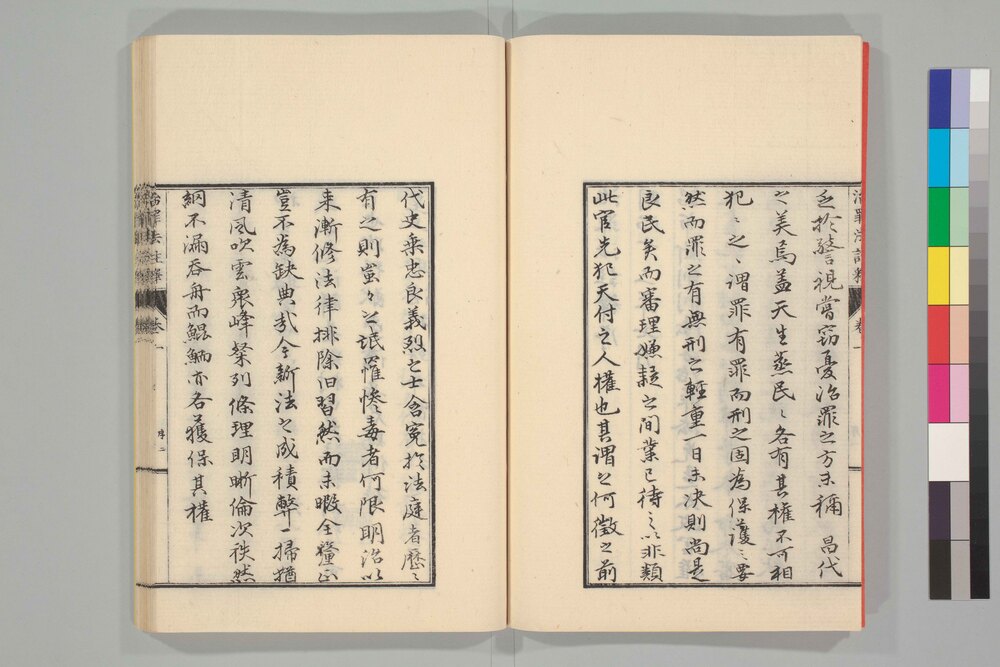 乏於警視嘗窃憂治罪之方未稱　昌代
之美烏蓋天生蒸民〻各有其權不可相
犯〻之謂罪有罪而刑之固為保護〻要
然而罪之有無刑之輕重一日未決則尚是
良民矣而審理嫌疑之間業已待之以非類
此官先犯天付之人權也其謂之何徵之前
代史乘忠良義烈之士含冤於法庭者歷〻
有之則蚩〻之氓罹慘毒者何限明治以
来漸修法律排除旧習然而未暇全釐正
豈不為缺典哉今新法之成積弊一掃猶
清風吹雲衆峰粲列條理明晰倫次秩然
網不漏呑舟而鯤鮞亦各獲保其權
治罪法註釋　卷一
序二